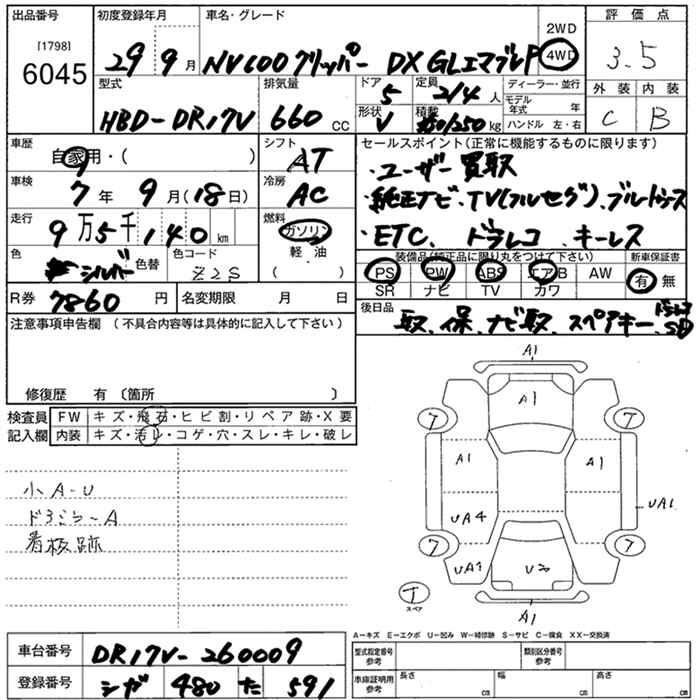 出品番号 初度登録年月 車名・グレード 2WD 評価点
[1798] 6045 29 9月 NV100クリッパー DX GLエマブレP 4WD 3.5
型式 排気量 ドア 5 定員 2/4人 ディーラー・並行 外装 内装
HBD-DR17V 660cc 形状 V 積載 /250kg モデル年式 年 ハンドル 左・右 C B
車歴 自家用・( ) シフト AT セールスポイント(正常に機能するものに限ります)
車検 7年 9月(18日) 冷房 AC ・ユーザー買取
走行 9万5千140km 燃料 ガソリン ・純正ナビ、TV(フルセグ)、ブルートゥース
色 シルバー 色替 色コード Z2S 軽・油 ( ) ・ETC、ドラレコ、キーレス
装備品(純正品に限り丸をつけて下さい) 新車保証書
PS PW ABS エアB AW 有 無
R券 7860円 名変期限 月 日 SR ナビ TV カワ
注意事項申告欄 (不具合内容等は具体的に記入して下さい) 後日品 取、保、ナビ取、スペアキー、ドラレコSD
修復歴 有 〔箇所 〕
検査員 FW キズ・飛石・ヒビ割・リペア跡・X要
記入欄 内装 キズ・汚レ・コゲ・穴・スレ・キレ・破レ
小A-U
ドアミラーA
看板跡
A1
A1
7 7
A1 A1
UA4 UA1
7 7
UA2 U2
T スペア
A1
A-キズ E-エクボ U-凹み W-補修跡 S-サビ C-腐食 XX-交換済
車台番号 DR17V-260009 型式指定番号 参考 類別区分番号 参考
登録番号 シガ 480 た 591 車庫証明用 参考 長さ cm 幅 cm 高さ cm